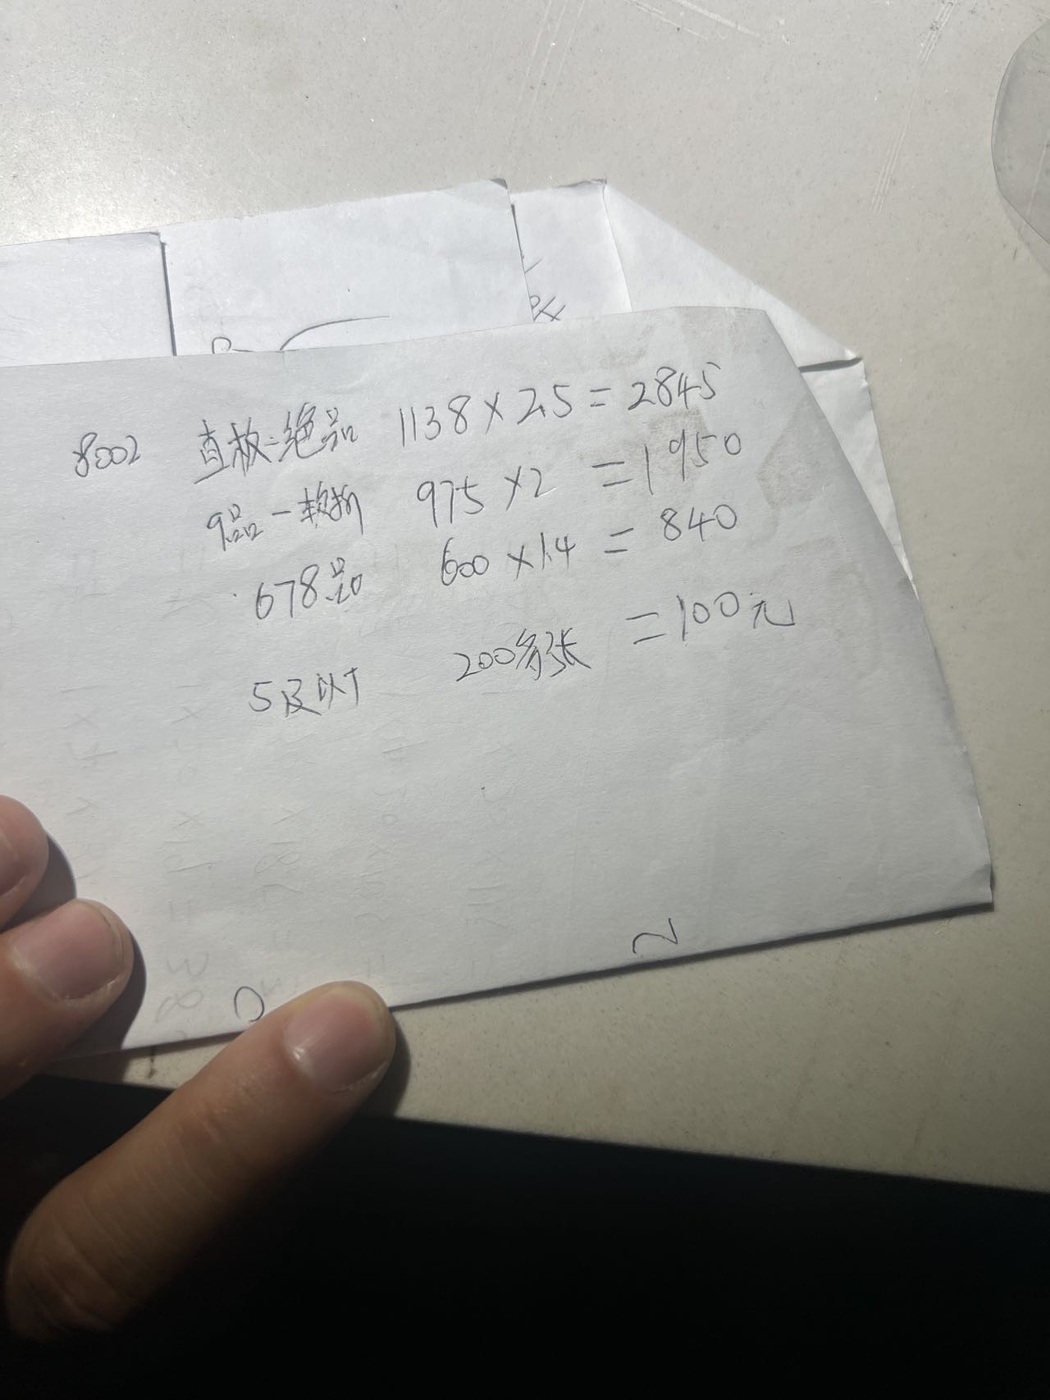 8002 直板-绝品 1138×2.5=2845
9品-软折 975×2 =1950
678品 600×1.4 = 840
5及以下 200多张 =100元